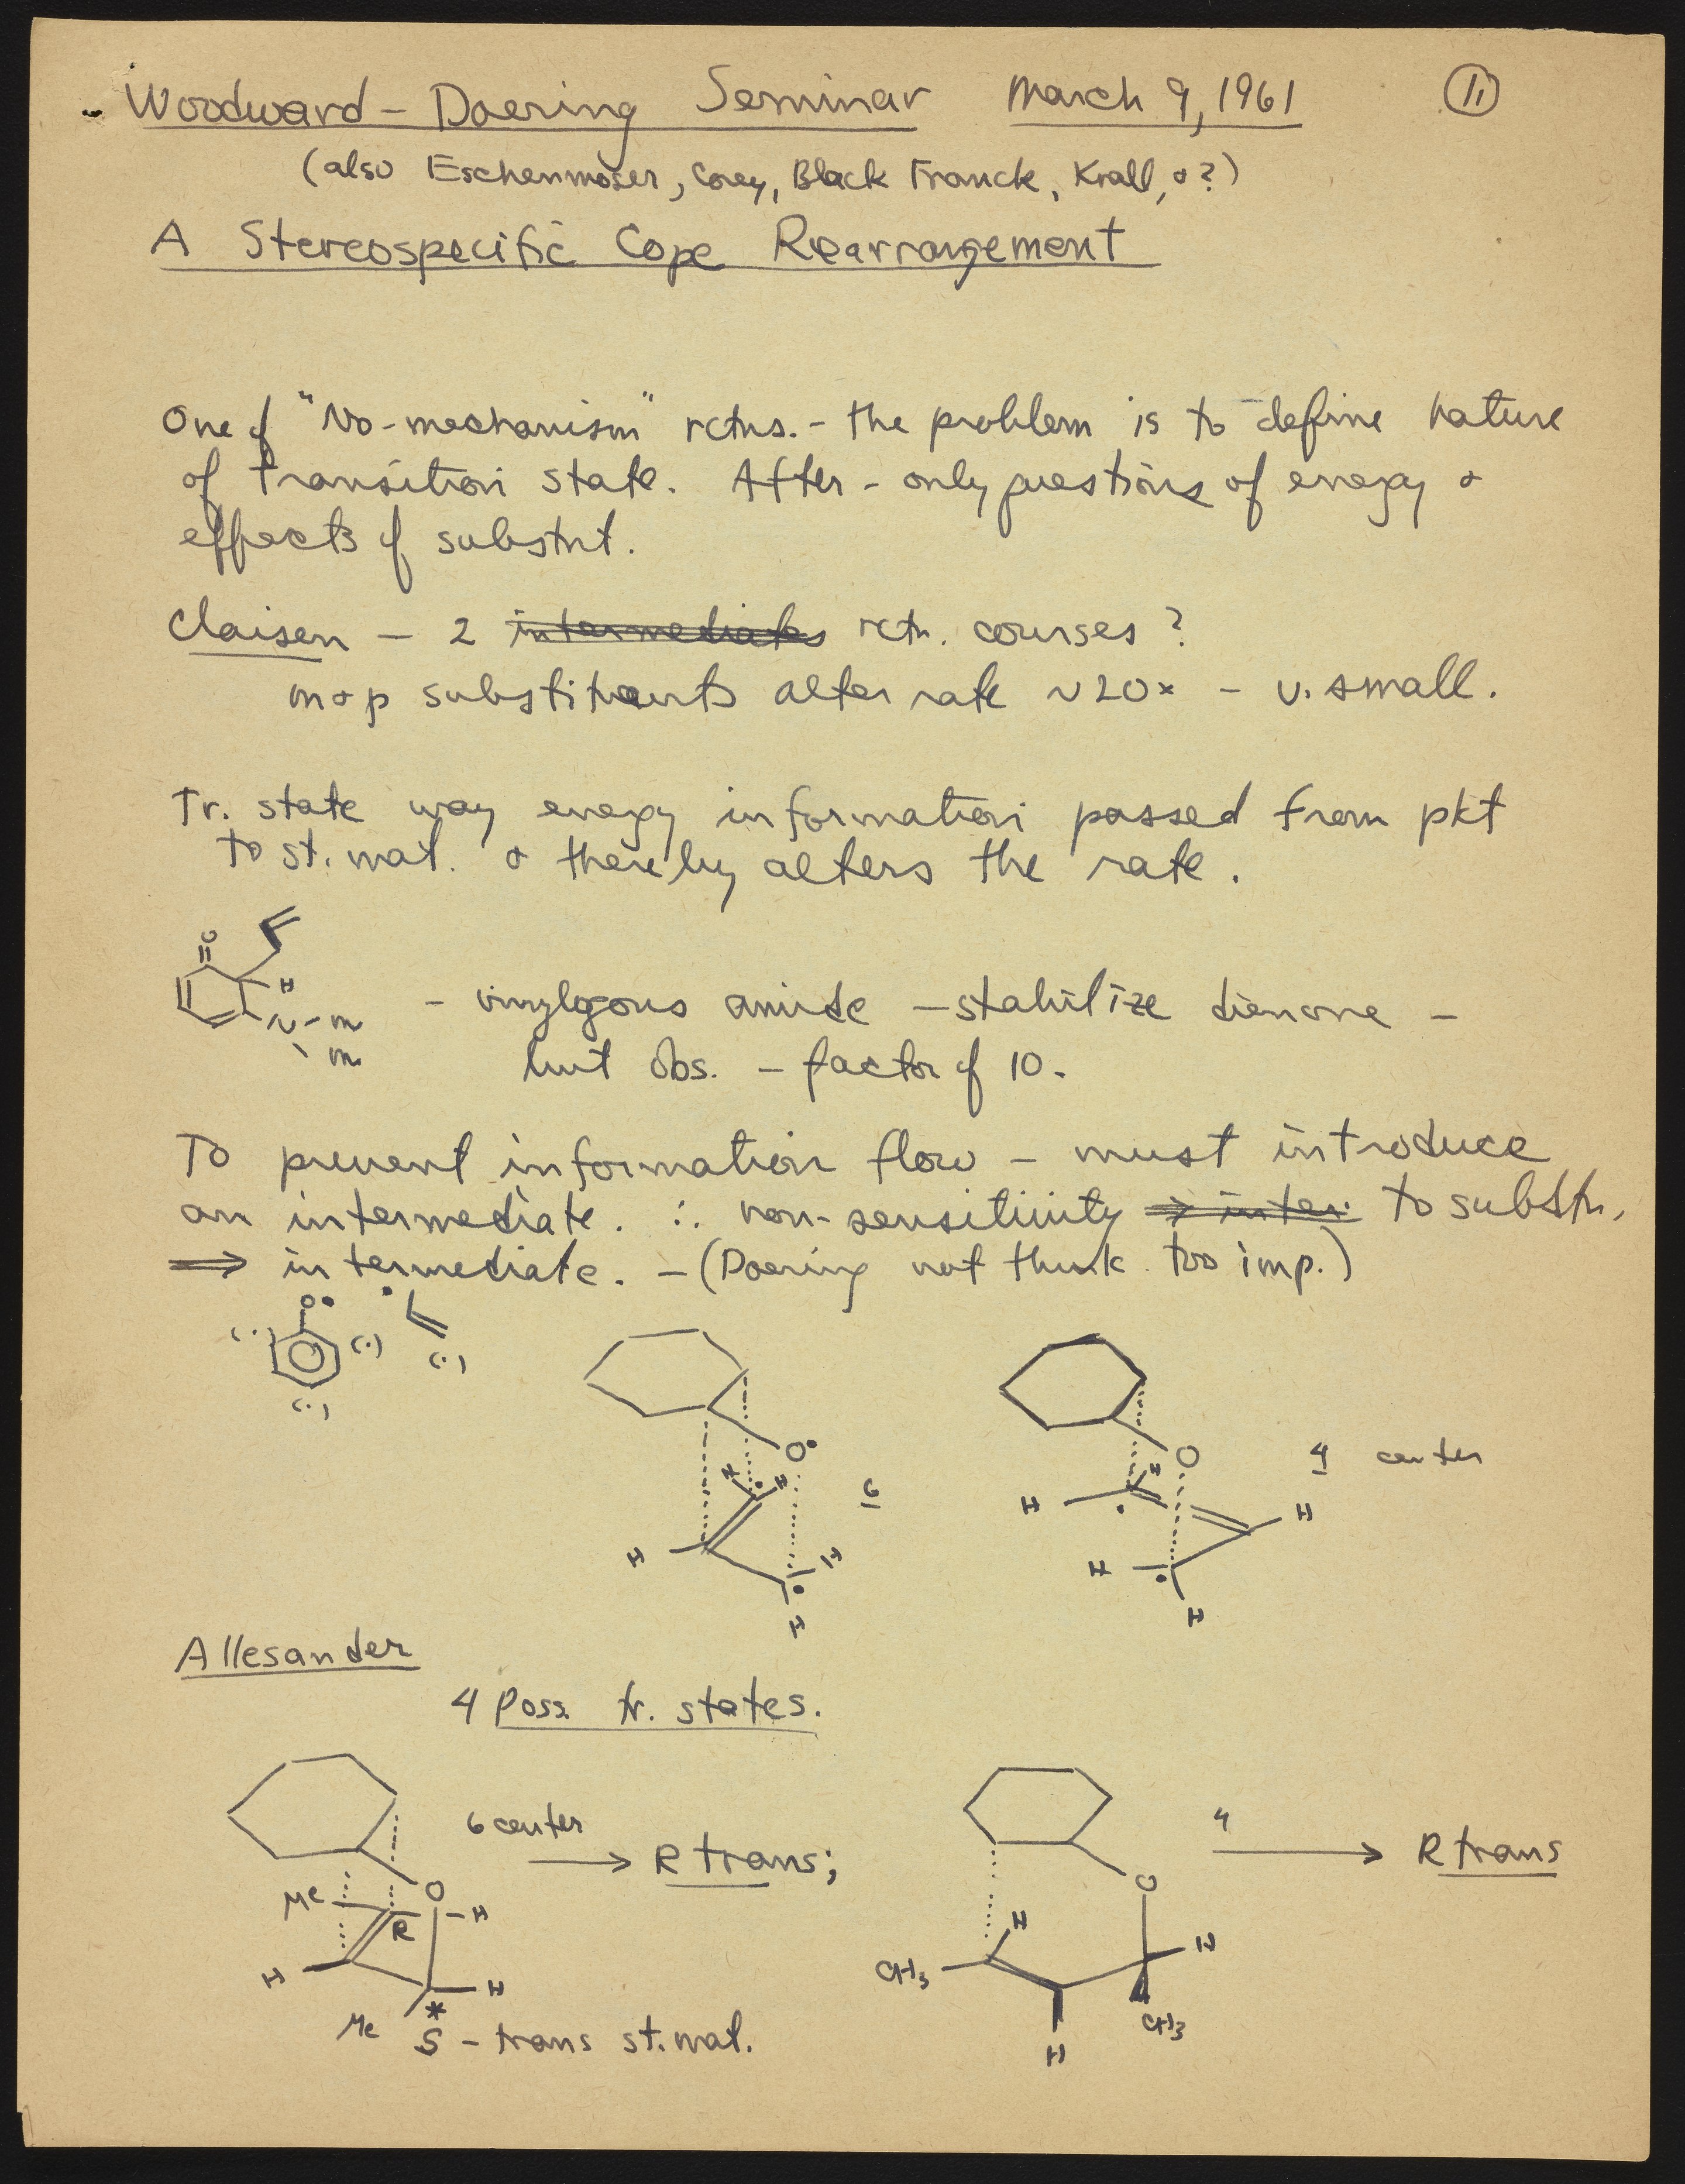 Woodward - Doering Seminar March 9, 1961 11
(also Eschenmoser, Corey, Black Franck, Krall, & ?)
A Stereospecific Cope Rearrangement
One of "No-mechanism" rctns. - the problem is to define nature
of transition state. After - only questions of energy &
effects of substnt.
Claisen - 2 intermediates rctn. courses ?
m & p substituents alter rate ~20x - v. small.
Tr. state way energy information passed from pkt
to st. mat. & thereby alters the rate.
O
H
N - m
m
- vinylgous amide - stabilize dienone -
but obs. - factor of 10.
To prevent information flow - must introduce
an intermediate. ∴ non-sensitivity ⇒ inter. to substn.
⇒ intermediate. - (Doering not think too imp.)
O•
(·) (·) (·)
(·)
O• O 4 center
H H 6 H H H
H H H
H H
Allesander
4 Poss. tr. states.
6 center → R trans; 4 → R trans
Me O H O
R H H
H H CH3 CH3
Me * H
S - trans st. mat.